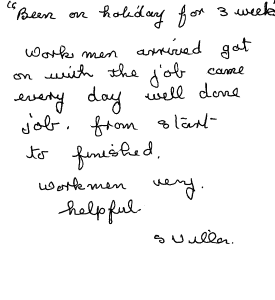 "Been on holiday for 3 week
work men arrived got
on with the job came
every day well done
job. from start
to finished.
workmen very.
helpful